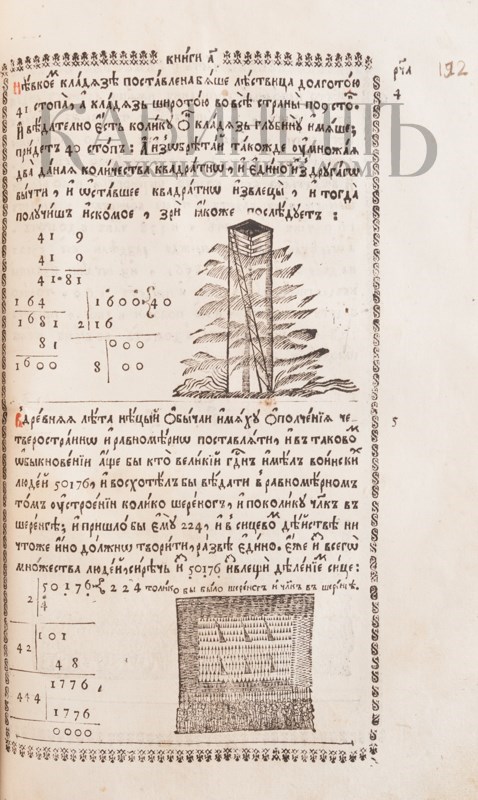 КНИГИ А҃
рч҃а 192
Нѣ́кое кла́дѧзѣ поста́влена бѧ́ше лѣ́ствица долгото́ю 4
41 стопа̀, а кла́дѧзь широто́ю во всѣ̀ страны̀ по 9 сто́.
И̓ вѣ́дателно є҆́сть коли́кѹ о҆́ кла́дѧзь глѹбинѹ̀ и҆мѧ́ше;
прїи́детъ 40 сто́пъ: А҆ и҆з̾ѡбрѣ́тай та́кожде ѹ҆множа́ѧ
два̀ да́наѧ коли́чества квадра́тнѡ, и҆ є҆ди́но и҆з̾ дрѹга́гѡ
вы́чти, и҆ ѡ҆ста́вшее квадра́тнѡ и҆звлецы̀, и҆ тогда̀
полѹ́чишъ и҆ско́мое, зрѝ ꙗ҆́коже послѣ́дѹетъ:
41 9
41 9
41 81
164 1600 40
1681 2 16
81 000
1600 8 00
В̾ дре́внѧѧ лѣ́та нѣ́цыи о҆бы́чаи и҆мѧ́хѹ о҆полче́нїѧ че- 5
тверостра́ннѡ и҆ равномѣ́рнѡ поставлѧ́ти, и҆ в̾ таково́м
ѡ҆быкнове́нїи а҆́ще бы кто̀ вели́кїй гдⷭ҇нъ и҆мѣ́лъ во́инскиⷯ
люде́й 50176, и҆ восхотѣ́лъ бы вѣ́дати в̾ равномѣ́рномъ
то́мъ ѹ҆строе́нїи коли́ко шере́ногъ, и҆ поко́ликѹ чл҃къ въ
шере́нгѣ; и҆ пришло̀ бы є҆мѹ̀ 224, и҆ в̾ си́цевоⷨ дѣ́йствѣ ни
что́же и҆́но до́лжнѡ твори́ти, ра́звѣ є҆ди́но. є҆́же и҆ всегѡ̀
мно́жества люде́й, си́рѣчь и҆ 50176 и҆влещѝ дѣле́нїеⷨ си́це:
50176 224 толи́ко бы бы́ло шере́нгъ и҆ чл҃къ въ шере́нгѣ.
2 4
101
42
48
1776
444
1776
0000
КАБИНЕТЪ
АУКЦИОННЫЙ ДОМ